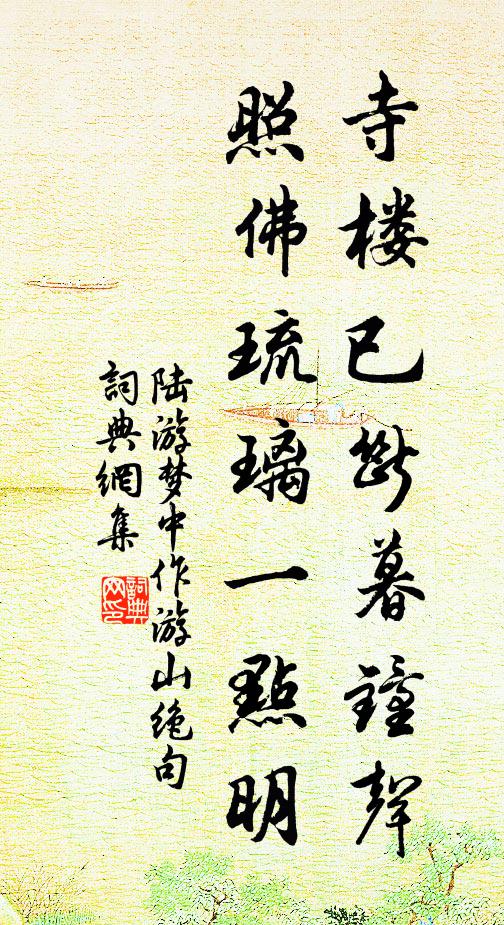 寺楼已断暮鐘聲
照佛琉璃一點明
陆游梦中作游山绝句
詞典網集
詞典网印